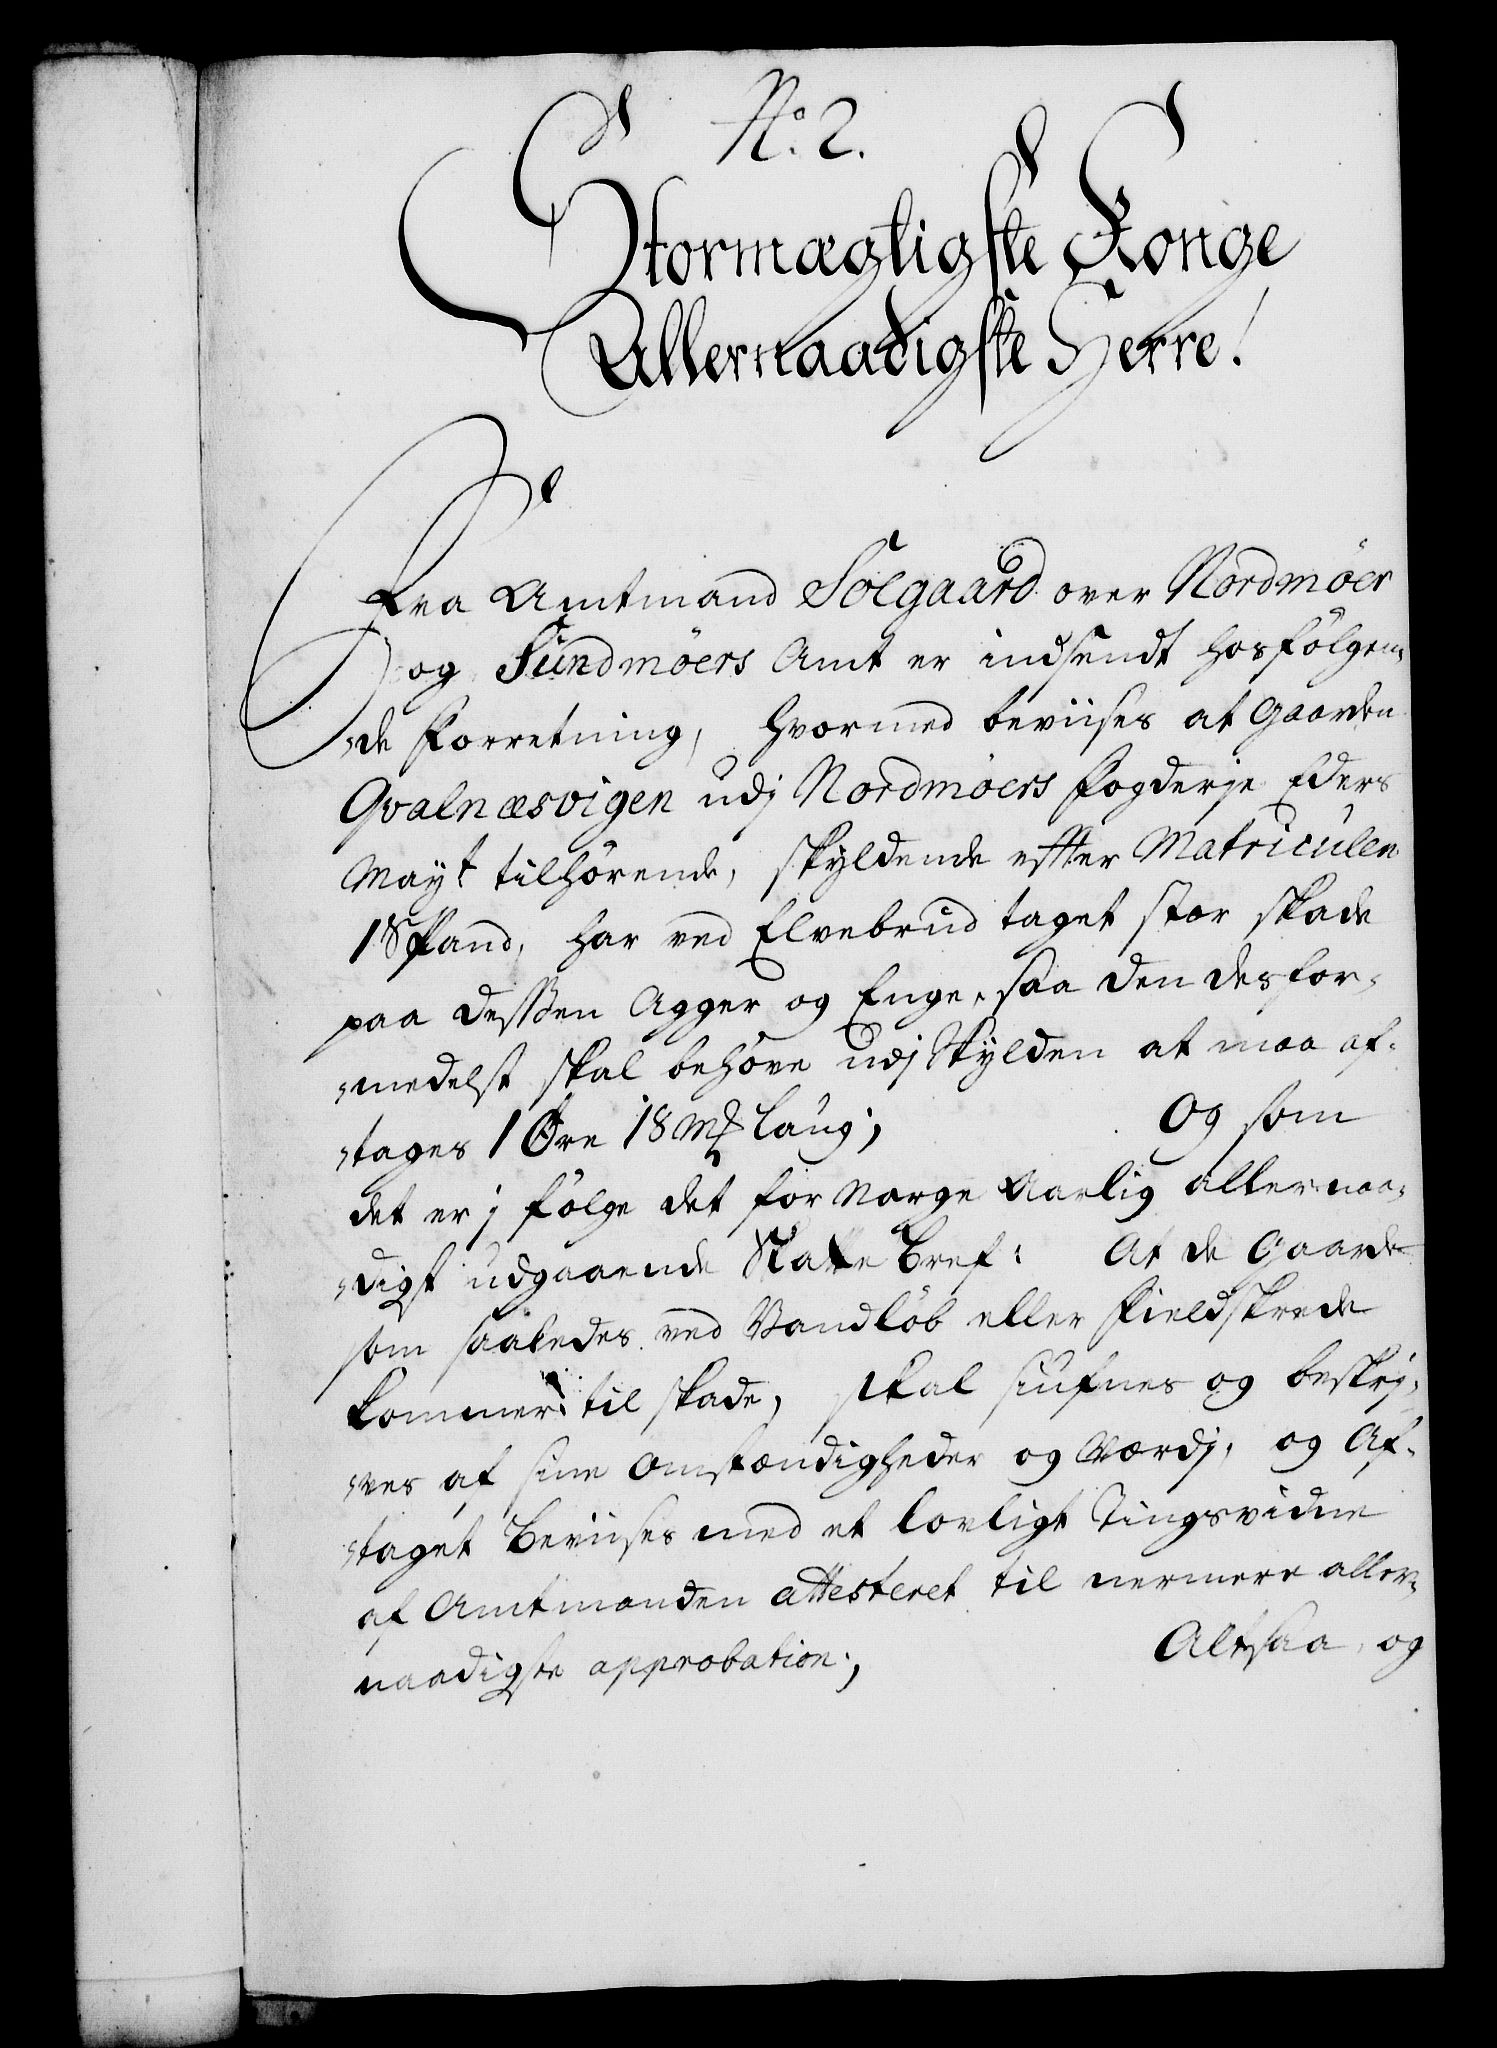 No. 2.
Stormægtigste Konge
Allernaadigste Herre!
Fra Amtmand Solgaard over Nordmöer
og Sundmöers Amt er indsendt hosfölgen-
de Forretning, hvormed beviises at Gaarden
Qvalnæsvigen udj Nordmöers fogderje Eders
Mayt tilhörende, skyldende effter Matriculen
1 Spand, har ved Elvebrud taget stor skade
paa dessen Agger og Enge, saa den desfor-
medelst skal behöve udj Skylden at maa af-
tages 1 Øre 18 Mk laug; Og som
det er j fölge det for Norge Aarlig allernaa-
digst udgaaende Skatte Bref: At de Gaarde
som saaledes ved Vandlöb eller Fieldskrede
kommer til skade, skal siufnes og beskrj-
ves af sine Omstændigheder og Værdj, og Af-
taget beviises med et lovligt Tingsvidne
af Amtmanden attesteret til nermere aller-
naadigste approbation; Altsaa, og